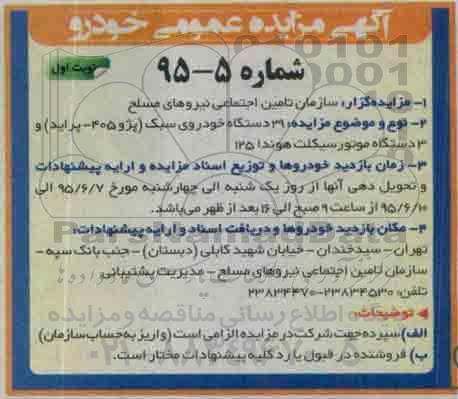 آگهی مزایده عمومی خودرو
نوبت اول
شماره ۵-۹۵
۱- مزایده‌گزار: سازمان تامین اجتماعی نیروهای مسلح
۲- نوع و موضوع مزایده: ۳۹ دستگاه خودروی سبک (پژو ۴۰۵- پراید) و
۳ دستگاه موتور سیکلت هوندا ۱۲۵
۳- زمان بازدید خودروها و توزیع اسناد مزایده و ارایه پیشنهادات
و تحویل دهی آنها از روز یک شنبه الی چهارشنبه مورخ ۹۵/۶/۷ الی
۹۵/۶/۱۰ از ساعت ۹ صبح الی ۱۶ بعد از ظهر می‌باشد.
۴- مکان بازدید خودروها و دریافت اسناد و ارایه پیشنهادات:
تهران - سیدخندان - خیابان شهید کابلی (دبستان) - جنب بانک سپه -
سازمان تامین اجتماعی نیروهای مسلح - مدیریت پشتیبانی
تلفن: ۲۳۸۳۴۵۳۰-۲۳۸۳۴۴۷۰
توضیحات:
الف) سپرده جهت شرکت در مزایده الزامی است (واریز به حساب سازمان)
ب) فروشنده در قبول یا رد کلیه پیشنهادات مختار است.
ParsNamadData